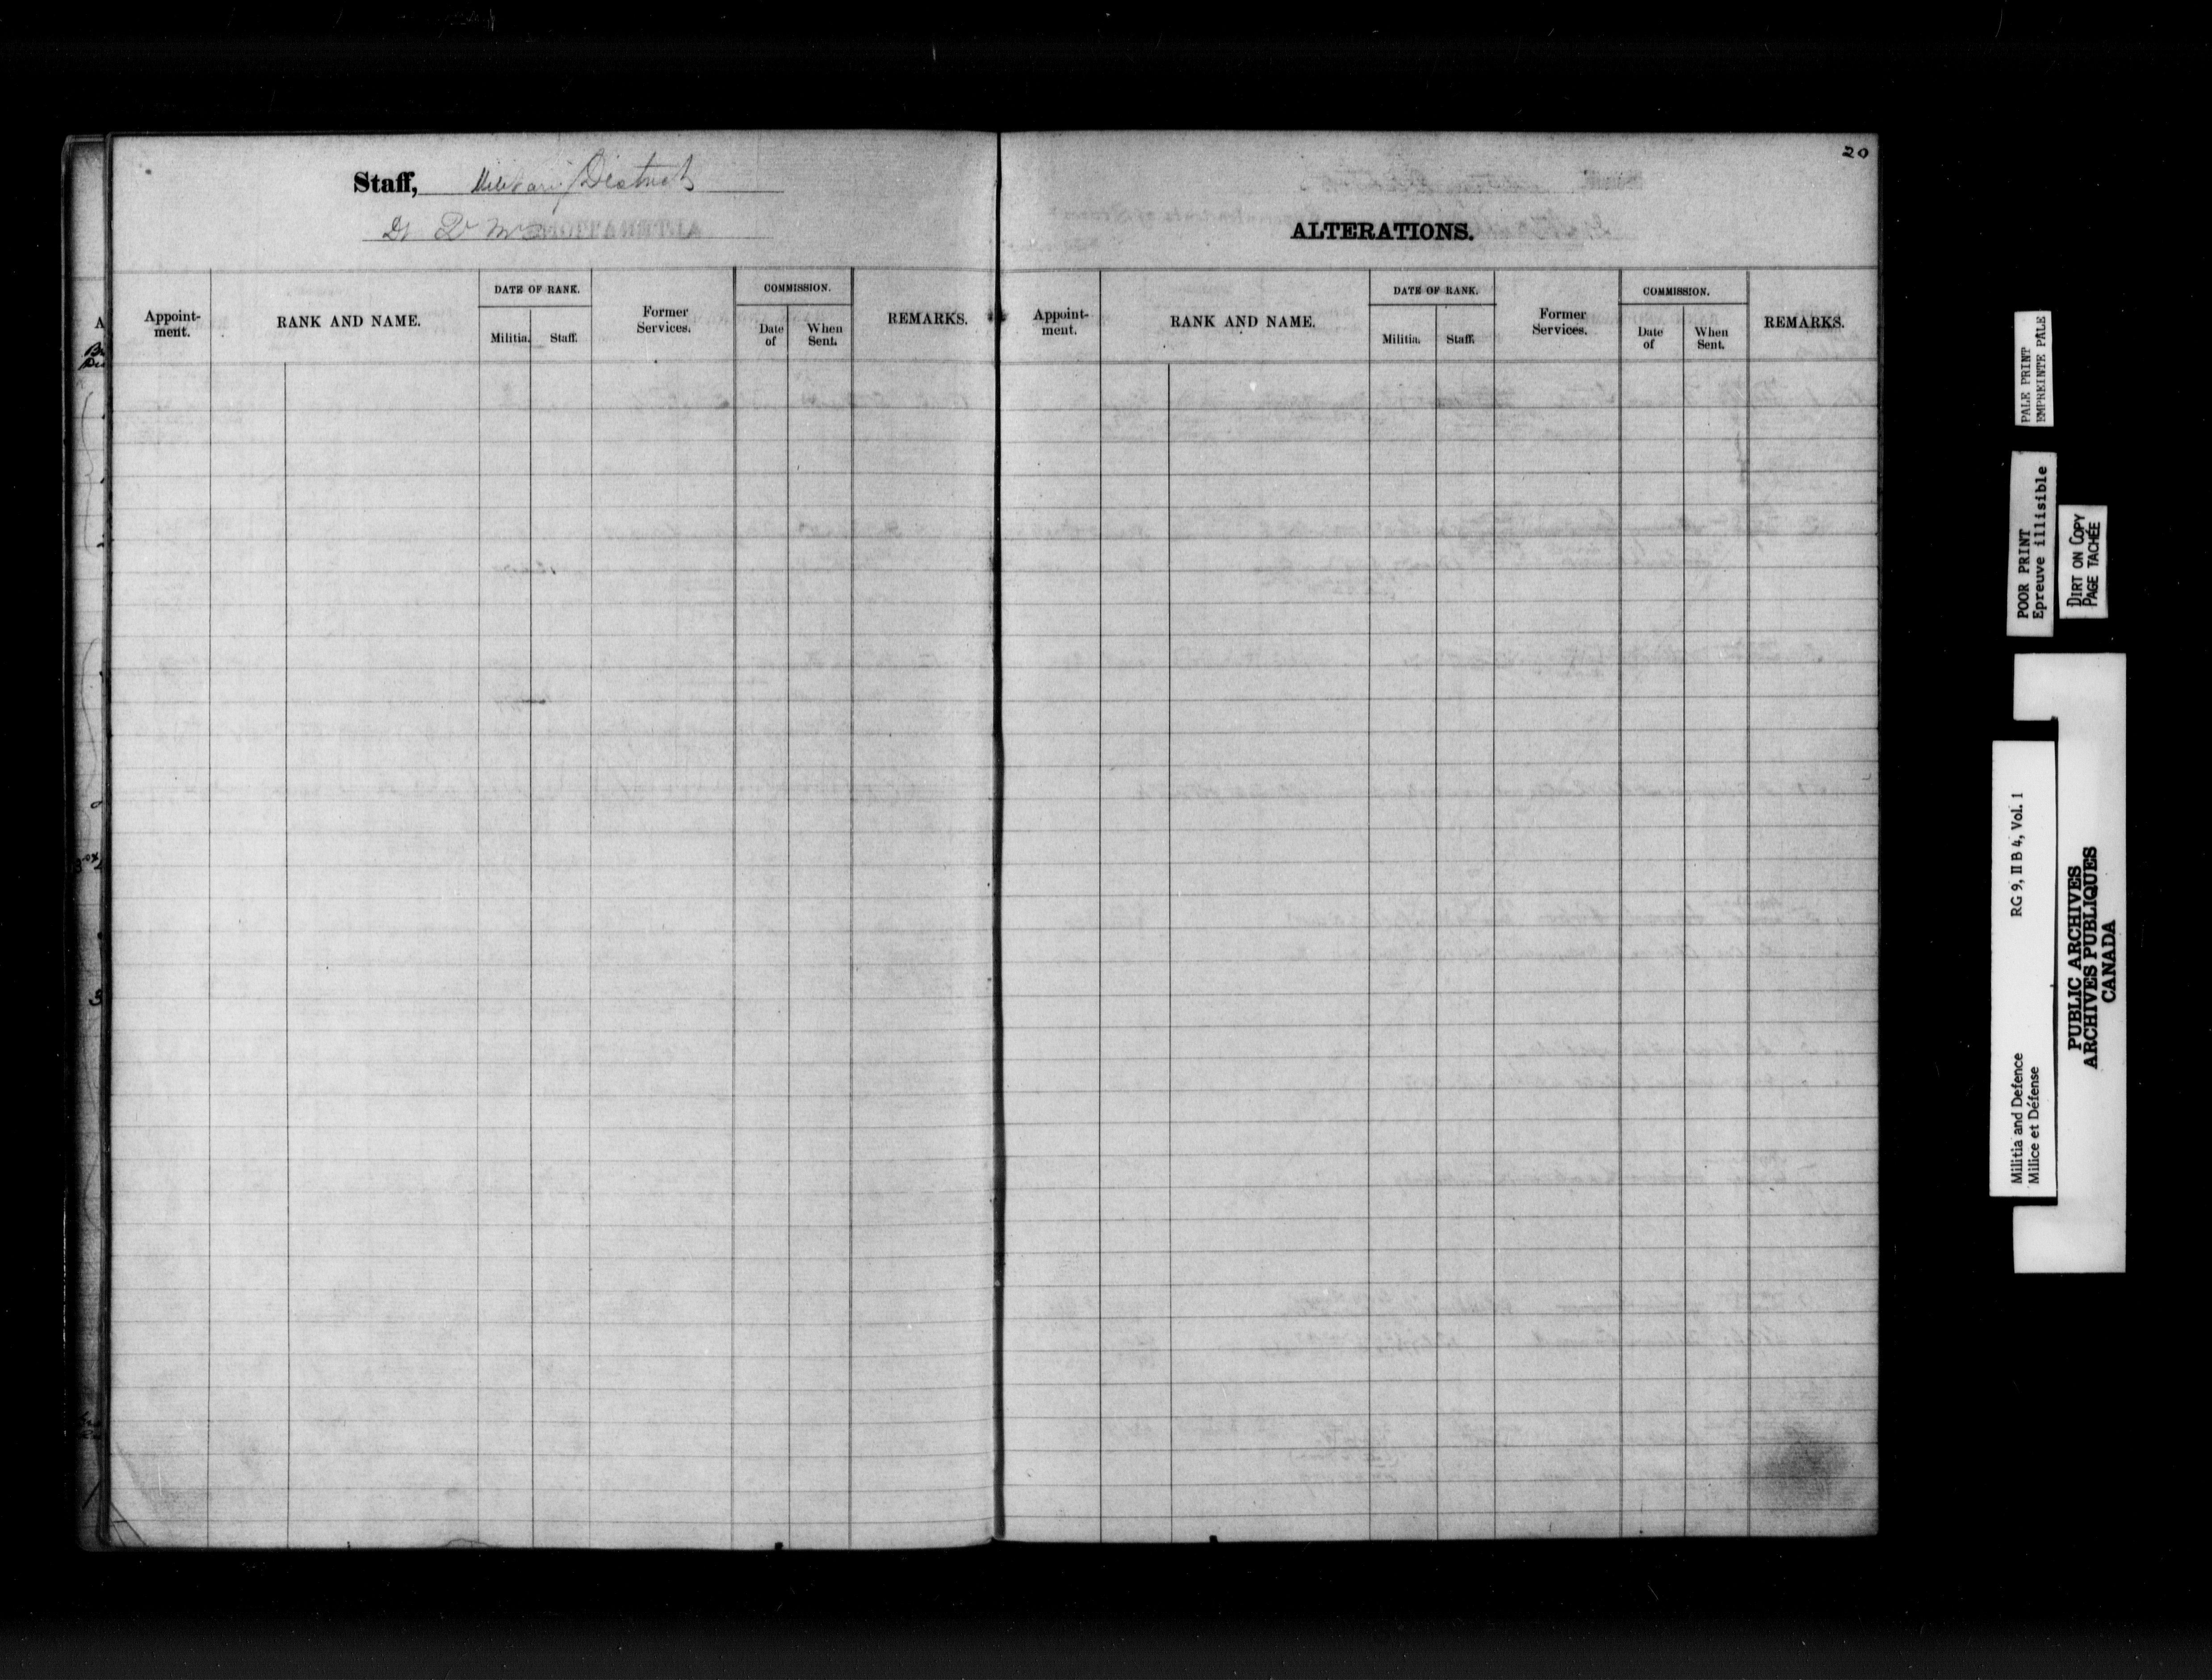 20
Staff, Military District
ALTERATIONS.
Appoint-
ment.
RANK AND NAME.
DATE OF RANK.
Militia.
Staff.
Former
Services.
COMMISSION.
Date
of
When
Sent.
REMARKS.
Appoint-
ment.
RANK AND NAME.
DATE OF RANK.
Militia.
Staff.
Former
Services.
COMMISSION.
Date
of
When
Sent.
REMARKS.
PALE PRINT
EMPREINTE PALE
POOR PRINT
Epreuve illisible
DIRT ON COPY
PAGE TACHÉE
RG 9, II B 4, Vol. 1
Militia and Defence
Milice et Défense
PUBLIC ARCHIVES
ARCHIVES PUBLIQUES
CANADA